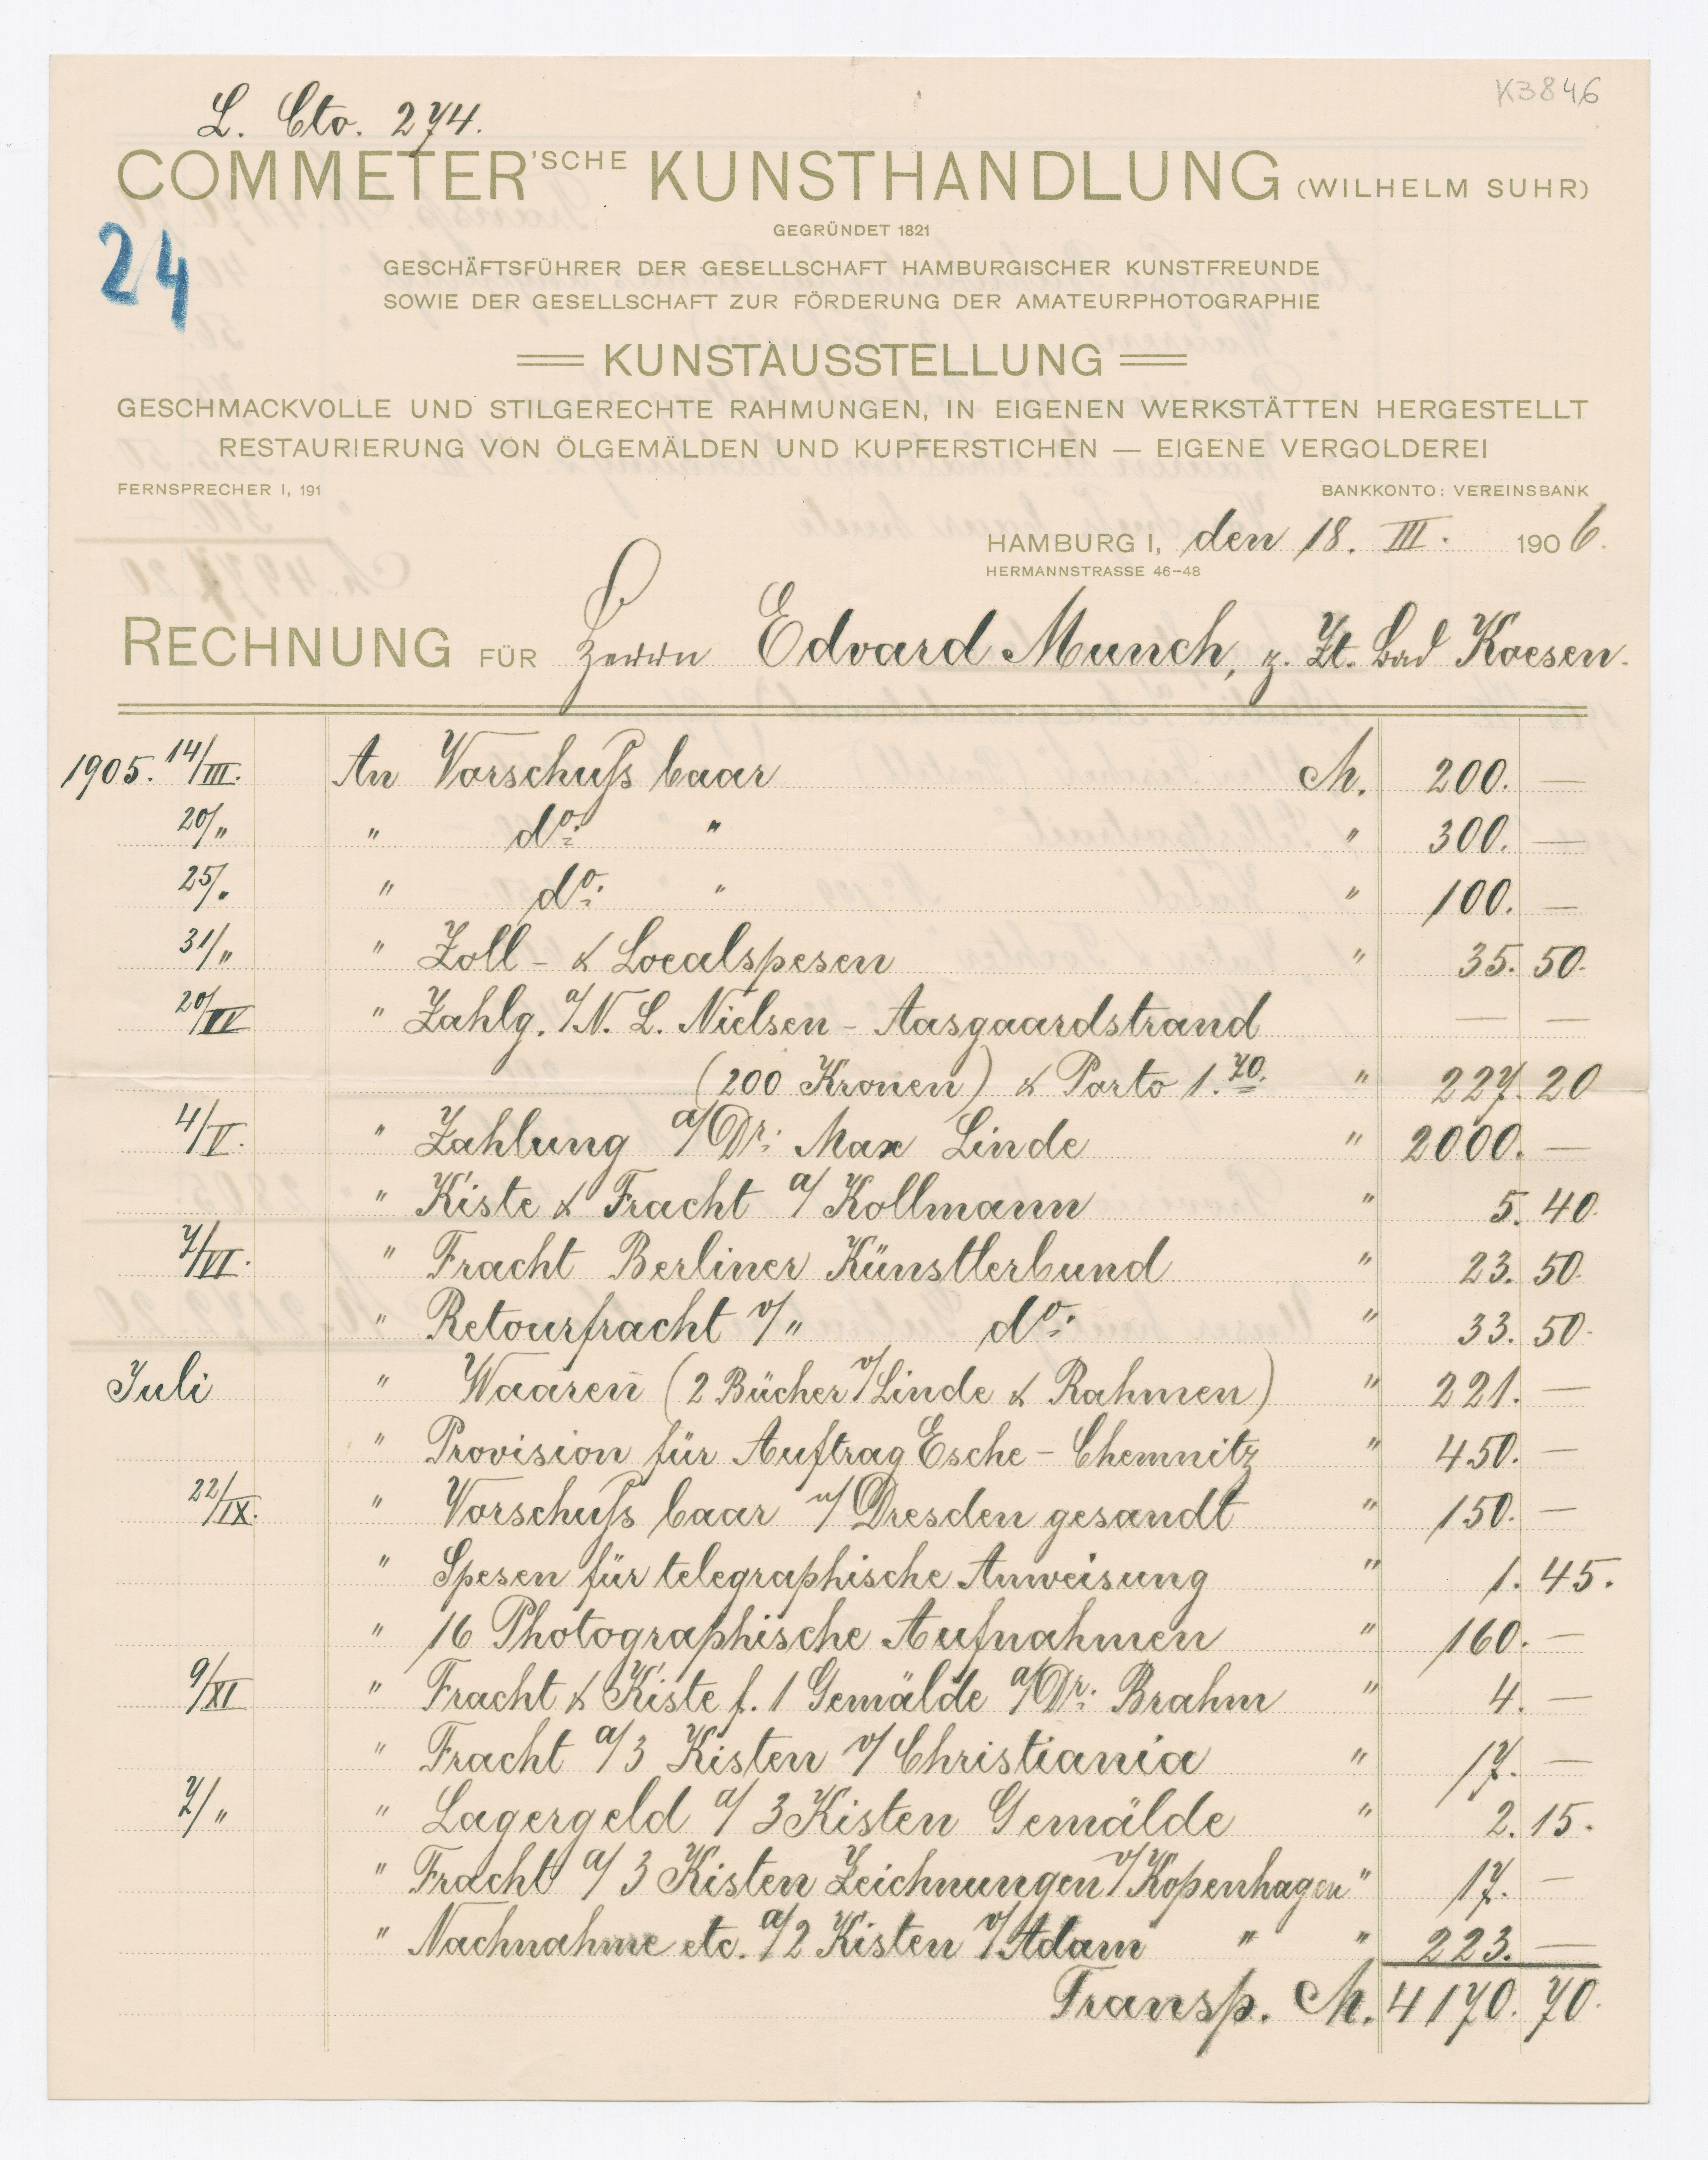 K3846
L. Cto. 274.
COMMETER'SCHE KUNSTHANDLUNG (WILHELM SUHR)
GEGRÜNDET 1821
24
GESCHÄFTSFÜHRER DER GESELLSCHAFT HAMBURGISCHER KUNSTFREUNDE
SOWIE DER GESELLSCHAFT ZUR FÖRDERUNG DER AMATEURPHOTOGRAPHIE
KUNSTAUSSTELLUNG
GESCHMACKVOLLE UND STILGERECHTE RAHMUNGEN, IN EIGENEN WERKSTÄTTEN HERGESTELLT
RESTAURIERUNG VON ÖLGEMÄLDEN UND KUPFERSTICHEN — EIGENE VERGOLDEREI
FERNSPRECHER I, 191 BANKKONTO: VEREINSBANK
HAMBURG I, den 18. III. 1906.
HERMANNSTRASSE 46–48
RECHNUNG FÜR Herrn Edvard Munch, z. Zt. Bad Koesen.
1905. 14/III. An Vorschuſs baar M. 200. —
20/" " do: " " 300. —
25/" " do: " " 100. —
31/" " Zoll- & Localspesen " 35. 50.
20/IV " Zahlg. a/N. L. Nielsen - Aasgaardstrand — —
(200 Kronen) & Porto 1.70. " 227. 20
4/V. " Zahlung a/Dr: Max Linde " 2000. —
" Kiste & Fracht a/ Kollmann " 5. 40.
7/VI. " Fracht Berliner Künstlerbund " 23. 50.
" Retourfracht v/" do: " 33. 50.
Juli " Waaren (2 Bücher v/Linde & Rahmen) " 221. —
" Provision für Auftrag Esche - Chemnitz " 450. —
22/IX. " Vorschuſs baar n/ Dresden gesandt " 150. —
" Spesen für telegraphische Anweisung " 1. 45.
" 16 Photographische Aufnahmen " 160. —
9/XI " Fracht & Kiste f. 1 Gemälde a/Dr: Brahm " 4. —
" Fracht a/3 Kisten v/ Christiania " 17. —
7/" " Lagergeld a/ 3 Kisten Gemälde " 2. 15.
" Fracht a/ 3 Kisten Zeichnungen v/Kopenhagen " 17. —
" Nachnahme etc. a/2 Kisten v/Adam " " 223. —
Transp. M. 4170. 70.